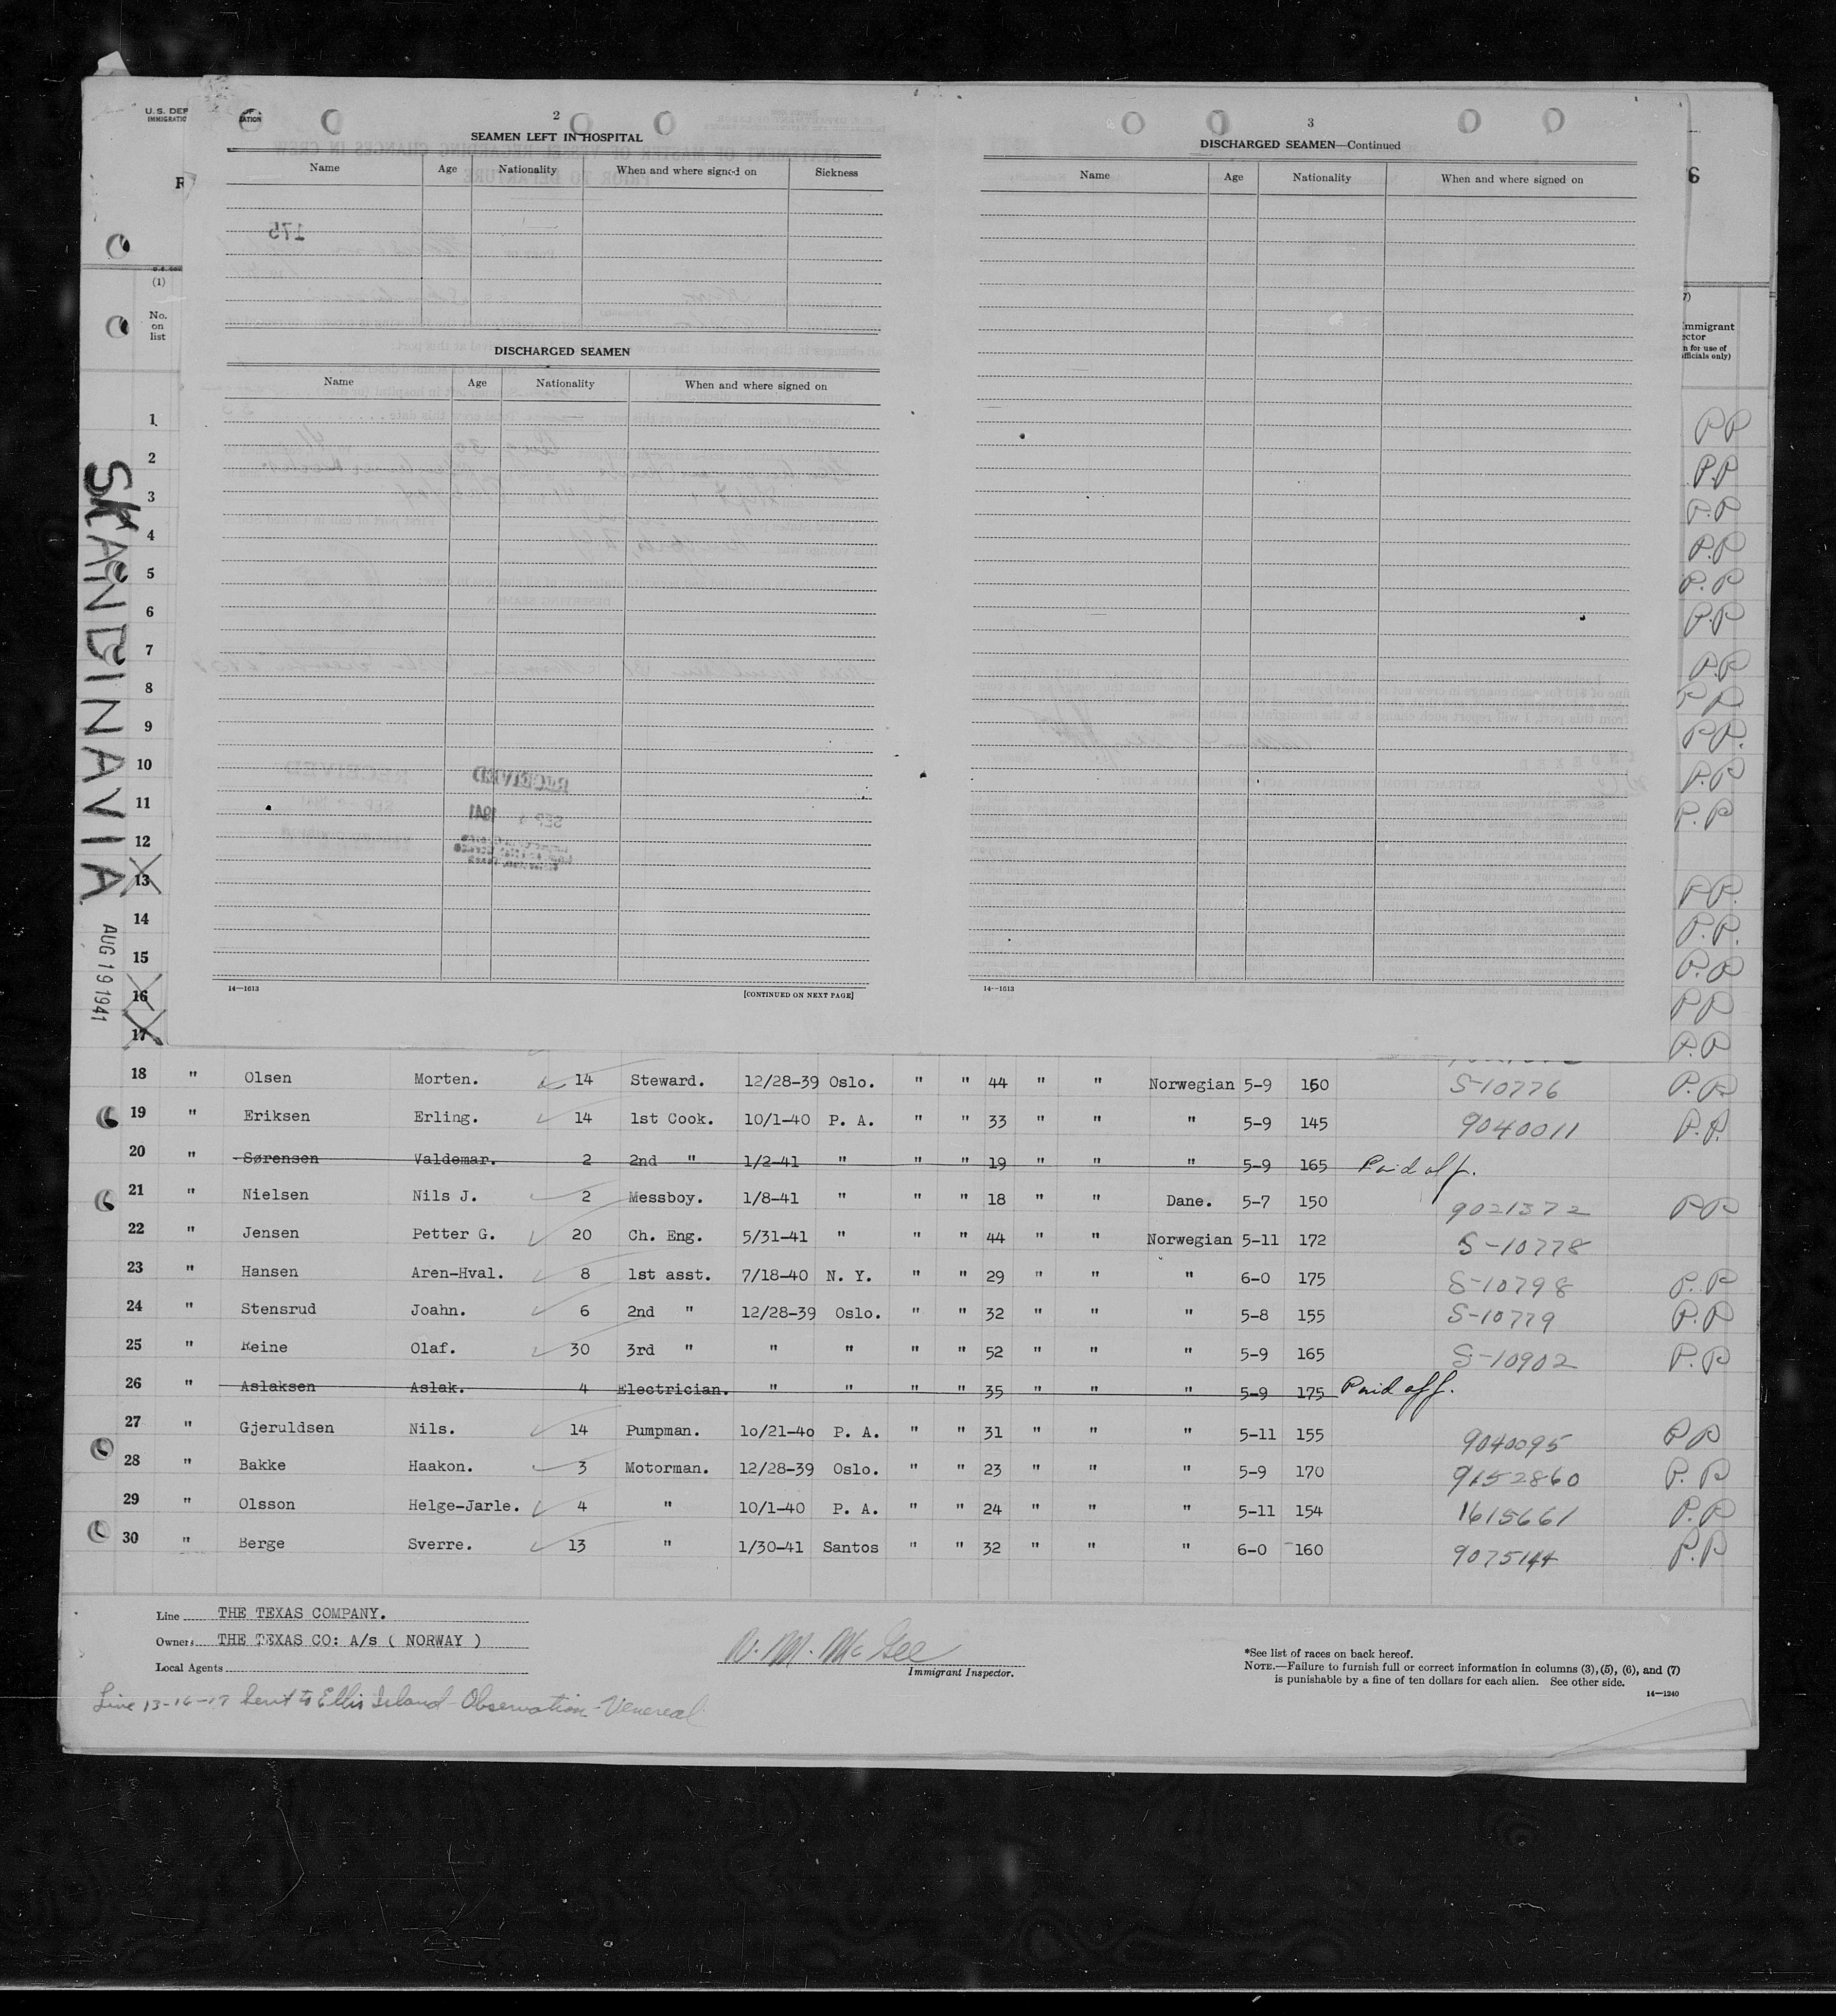 U.S. DEP
IMMIGRATIO
ATION
2
SEAMEN LEFT IN HOSPITAL
Name Age Nationality When and where signed on Sickness
175
DISCHARGED SEAMEN
Name Age Nationality When and where signed on
RECEIVED
SEP 1941
14—1613
[CONTINUED ON NEXT PAGE]
3
DISCHARGED SEAMEN—Continued
Name Age Nationality When and where signed on
14—1613
R
6
(1)
No.
on
list
7)
mmigrant
ector
n for use of
fficials only)
SKANDINAVIA
AUG 19 1941
1 PP
2 P.P
3 P.P
4 P.P
5 P.P
6 P.P
7 P.P
8 P.P
9 P.P.
10 P.P
11 P.P
12
13 P.P.
14 P.P.
15 P.P
16 P.P
17 P.P
18 " Olsen Morten. 14 Steward. 12/28-39 Oslo. " " 44 " " Norwegian 5-9 160 S-10776 P.P
19 " Eriksen Erling. 14 1st Cook. 10/1-40 P. A. " " 33 " " " 5-9 145 9040011 P.P.
20 " Sørensen Valdemar. 2 2nd " 1/2-41 " " " 19 " " " 5-9 165 Paid off.
21 " Nielsen Nils J. 2 Messboy. 1/8-41 " " " 18 " " Dane. 5-7 150 9021372 PP
22 " Jensen Petter G. 20 Ch. Eng. 5/31-41 " " " 44 " " Norwegian 5-11 172 S-10778
23 " Hansen Aren-Hval. 8 1st asst. 7/18-40 N. Y. " " 29 " " " 6-0 175 S-10798 P.P
24 " Stensrud Joahn. 6 2nd " 12/28-39 Oslo. " " 32 " " " 5-8 155 S-10779 P.P
25 " Reine Olaf. 30 3rd " " " " " 52 " " " 5-9 165 S-10902 P.P
26 " Aslaksen Aslak. 4 Electrician. " " " " 35 " " " 5-9 175 Paid off.
27 " Gjeruldsen Nils. 14 Pumpman. 1o/21-4o P. A. " " 31 " " " 5-11 155 9040095 PP
28 " Bakke Haakon. 3 Motorman. 12/28-39 Oslo. " " 23 " " " 5-9 170 9152860 P.P
29 " Olsson Helge-Jarle. 4 " 10/1-40 P. A. " " 24 " " " 5-11 154 1615661 P.P
30 " Berge Sverre. 13 " 1/30-41 Santos " " 32 " " " 6-0 160 9075144 P.P
Line THE TEXAS COMPANY.
Owners THE TEXAS CO: A/s ( NORWAY )
Local Agents
N. M. McGee
Immigrant Inspector.
*See list of races on back hereof.
NOTE.—Failure to furnish full or correct information in columns (3), (5), (6), and (7)
is punishable by a fine of ten dollars for each alien. See other side.
14—1240
Line 13-16-17 Sent to Ellis Island - Observation - Venereal